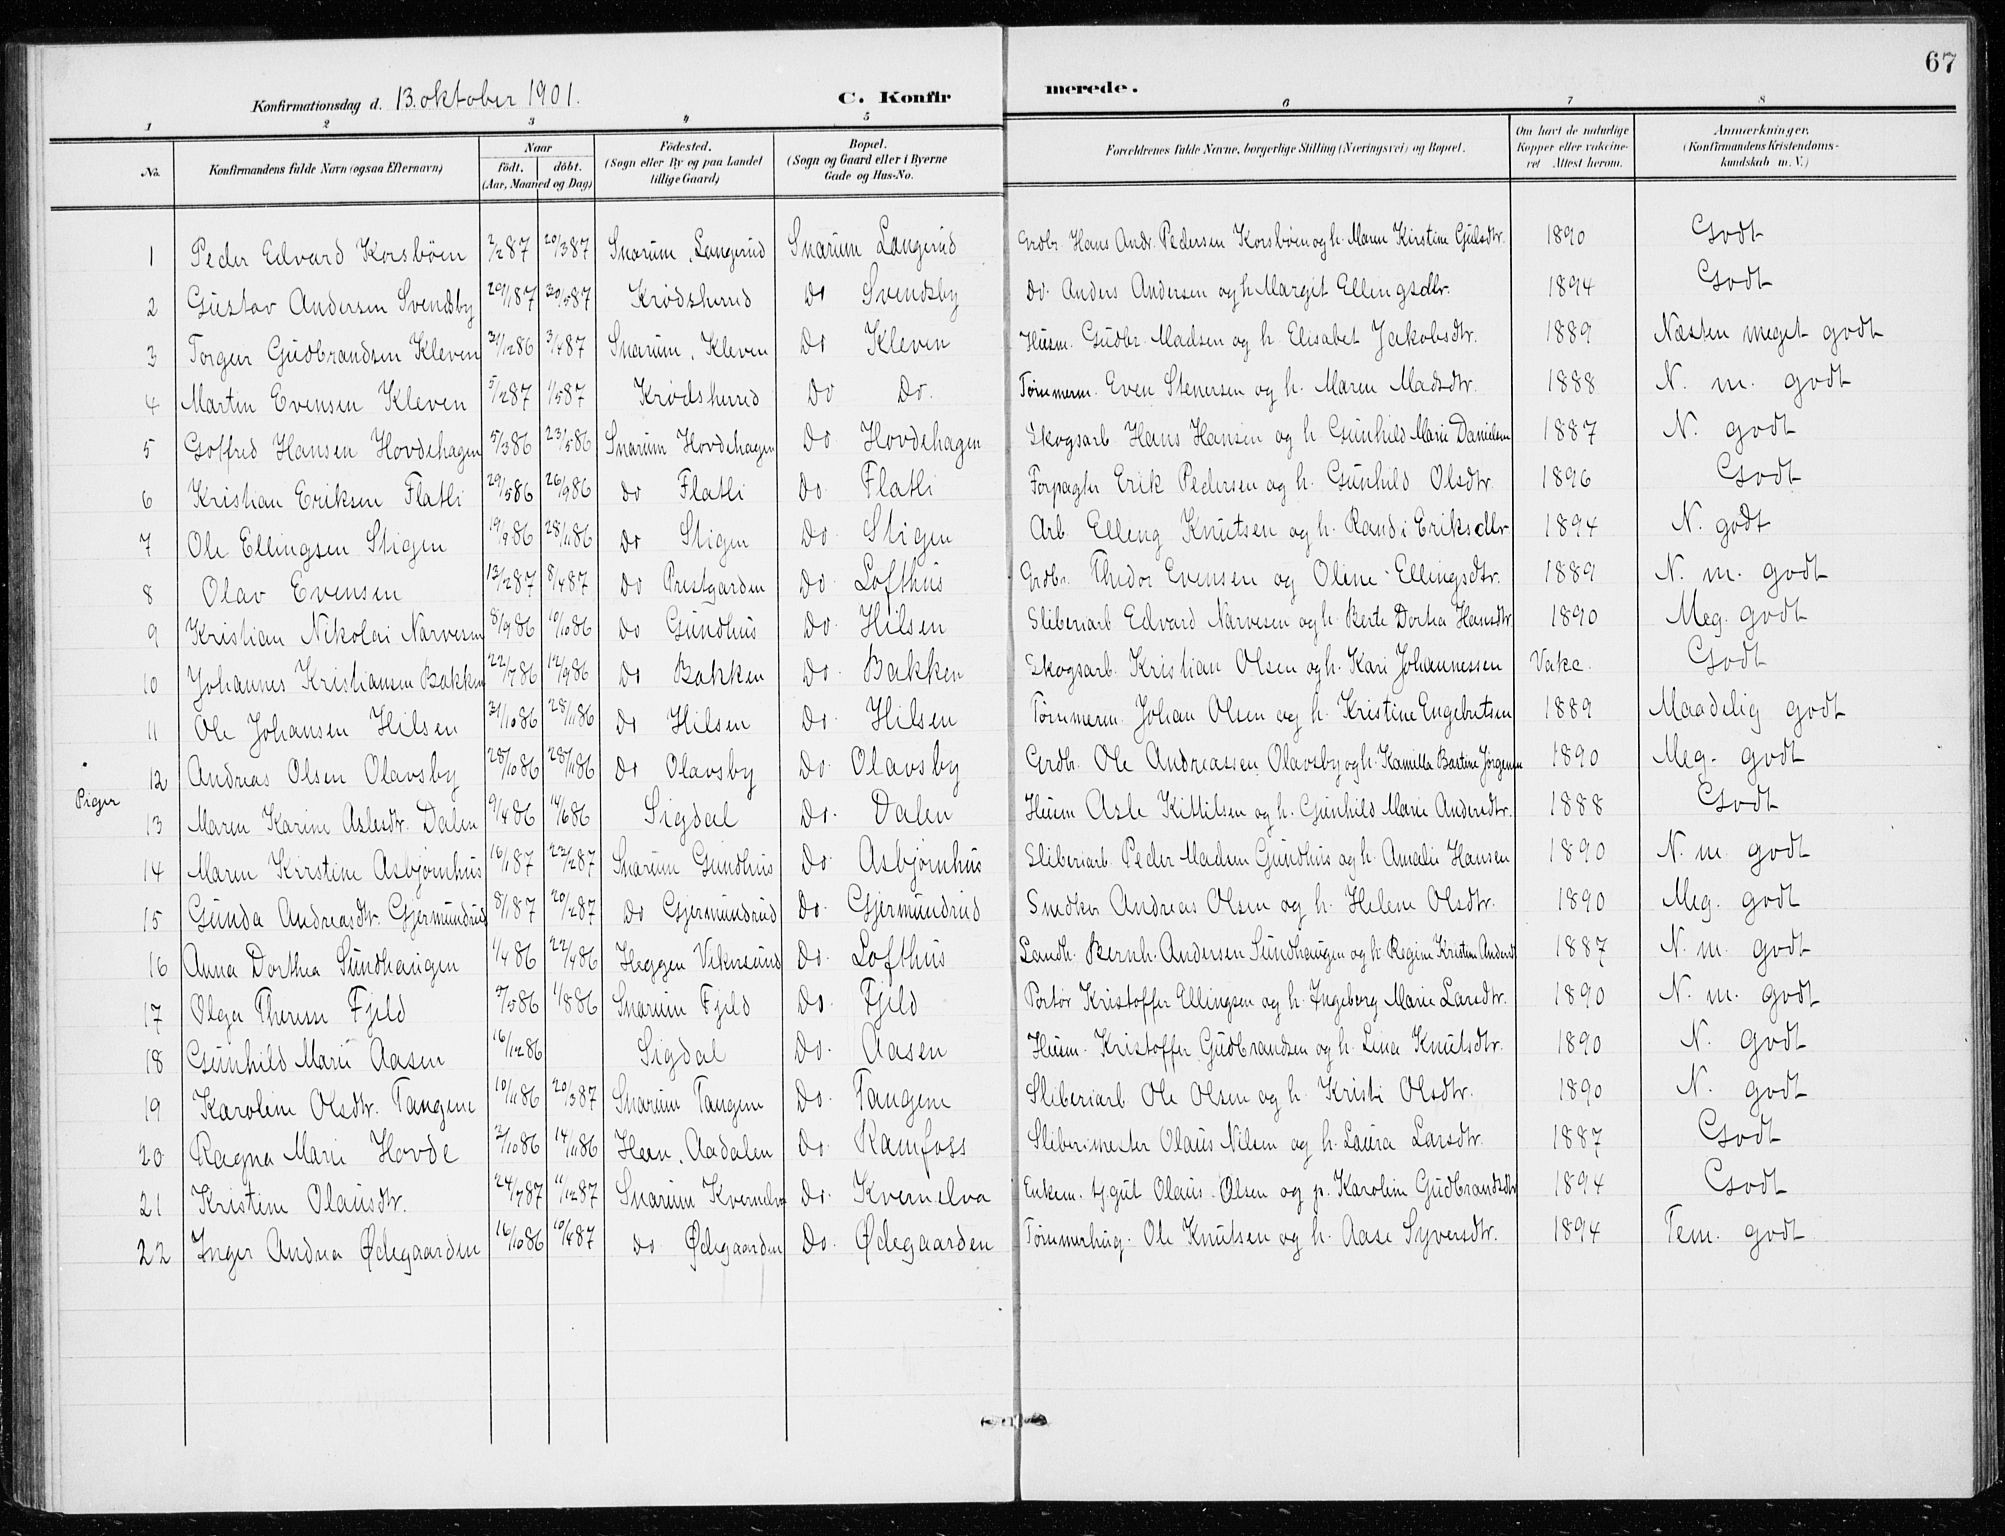 67
Konfirmationsdag d. 13. oktober 1901. C. Konfirmerede.
1 2 3 4 5 6 7 8
No. Konfirmandens fulde Navn (ogsaa Efternavn) Naar født, døbt. (Aar, Maaned og Dag) Fødested. (Sogn eller By og paa Landet tillige Gaard) Bopæl. (Sogn og Gaard eller i Byerne Gade og Hus-No. Forældrenes fulde Navne, borgerlige Stilling (Næringsvei) og Bopæl. Om havt de naturlige Kopper eller vakcineret. Attest herom. Anmærkninger. (Konfirmandens Kristendomskundskab m. V.)
1 Peder Edvard Korsbøen 2/2 87 20/3 87 Snarum, Langerud Snarum Langerud Grdbr. Hans Andr. Pedersen Korsbøen og h. Maren Kirstine Gulsdtr. 1890 Godt
2 Gustav Andersen Svendsby 29/1 87 30/5 87 Krødsherred Do Svendsby Do. Anders Andersen og h Margit Ellingsdtr. 1894 Godt
3 Torger Gudbrandsen Kleven 31/12 86 3/4 87 Snarum, Kleven Do Kleven Husm. Gudbr. Madsen og h. Elisabet Jakobsdtr. 1889 Næsten meget godt
4 Martin Evensen Kleven 5/2 87 1/5 87 Krødsherred Do Do. Tømmerm. Even Stenersen og h. Maren Madsdtr. 1888 N. m. godt
5 Gotfred Hansen Hovdehagen 5/3 86 23/5 86 Snarum Hovdehagen Do Hovdehagen Skogsarb. Hans Hansen og h Gunhild Marie Danielsen 1887 N. godt
6 Kristian Eriksen Flatli 29/5 86 26/9 86 do Flatli Do. Flatli Forpagter Erik Pedersen og h. Gunhild Olsdtr. 1896 Godt
7 Ole Ellingsen Stigen 19/9 86 28/11 86 do Stigen Do. Stigen Arb. Elleng Knutsen og h. Randi Eriksdtr 1894 N. godt
8 Olav Evensen 13/2 87 8/4 87 Do Prestgarden Do. Lofthus Grdbr. Thedor Evensen og Oline Ellingsdtr. 1889 N. m. godt
9 Kristian Nikolai Narvesen 8/9 86 10/10 86 do Gundhus Do. Hilsen Sliberiarb Edvard Narvesen og h. Berte Dortea Hansdtr. 1890 Meg. godt
10 Johannes Kristiansen Bakken 22/7 86 12/9 86 Do Bakken Do. Bakken Skogsarb. Kristian Olsen og h. Kari Johannessen Vakc. Godt
11 Ole Johansen Hilsen 31/10 86 28/11 86 Do Hilsen Do. Hilsen Tømmerm. Johan Olsen og h. Kristine Engebretsen 1889 Maadelig godt
12 Andreas Olsen Olavsby 28/10 86 28/11 86 Do Olavsby Do. Olavsby Grdbr. Ole Andreassen Olavsby og h. Kamilla Bastine Jørgensen 1890 Meg. godt
Piger
13 Maren Karine Aslesdtr. Dalen 9/4 86 14/6 86 Sigdal Do. Dalen Husm Asle Kittilsen og h. Gunhild Marie Andersdtr. 1888 Godt
14 Maren Kirstine Asbjørnhus 16/1 87 22/2 87 Snarum Gundhus Do. Asbjørnhus Sliberiarb. Peder Madsen Gundhus og h. Amalie Hansen 1890 N. m. godt
15 Gunda Andreasdtr. Gjermundrud 8/1 87 20/2 87 Do Gjermundrud Do. Gjermundrud Snedker Andreas Olsen og h. Helene Olsdtr. 1890 Meg. godt
16 Anna Dorthea Sundhaugen 1/4 86 22/4 86 Heggen Vikersund Do. Lofthus Landh. Bernh. Andersen Sundhaugen og h. Regine Kristine Andersdt 1887 N. m. godt
17 Olga Therese Fjeld /5 86 1/8 86 Snarum Fjeld Do. Fjeld Portør Kristoffer Ellingsen og h. Ingeborg Marie Larsdtr. 1890 N. m. godt
18 Gunhild Marie Aasen 16/12 86 Sigdal Do. Aasen Husm. Kristoffer Gudbrandsen og h. Lina Knutsdtr. 1890 N. godt
19 Karoline Olsdtr. Tangene 10/11 86 20/3 87 Snarum Tangene Do. Tangene Sliberiarb Ole Olsen og h. Kristi Olsdtr. 1890 N. godt
20 Ragna Marie Hovde 3/10 86 14/11 86 Heen, Aadalen Do. Kamfoss Slibermester Olaus Nilsen og h. Laura Larsdtr. 1887 Godt
21 Kristine Olausdtr. 24/7 87 11/12 87 Snarum Kvernelva Do. Kvernelva Enkem. tjgut Olaus Olsen og p. Karoline Gudbrandsdtr 1894 Godt
22 Inger Andrea Ødegaarden 16/10 86 10/4 87 do. Ødegaarden Do. Ødegaarden Tømmerhug. Ole Knutsen og h. Aase Syversdtr. 1894 Tem. godt